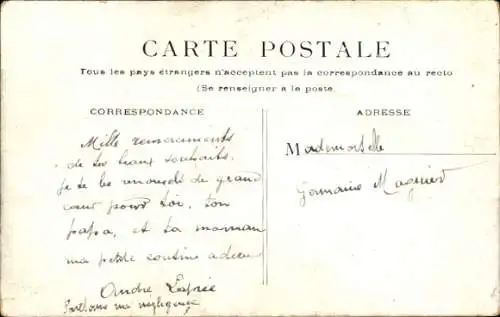 CARTE POSTALE
Tous les pays étrangers n'acceptent pas la correspondance au recto
(Se renseigner a la poste.
CORRESPONDANCE
ADRESSE
Mille remerciments
de tes beaux souhaits.
je te les de grand
cœur pour toi, ton
papa, et ta maman
ma petite cousine adieu
André
Pardonne ma négligence
Mademoiselle
Germaine Magniert